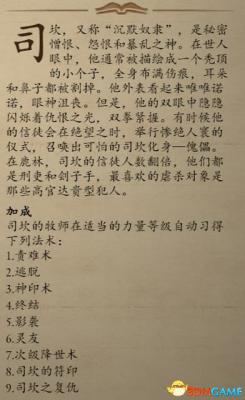 司坎，又称“沉默奴隶”，是秘密
憎恨、怨恨和暴乱之神。在世人
眼中，他通常被描绘成一个秃顶
的小个子，全身布满伤痕，耳朵
和鼻子都被割掉。他外表看起来唯唯诺
诺，眼神沮丧。但是，他的双眼中隐隐
闪烁着仇恨之光，双拳紧握。有时候他
的信徒会在绝望之时，举行惨绝人寰的
仪式，召唤出可怕的司坎化身—傀儡。
在鹿林，司坎的信徒人数翻倍，他们都
是刑吏和刽子手，最喜欢的虐杀对象是
那些高官达贵型犯人。
加成
司坎的牧师在适当的力量等级自动习得
下列法术：
1.责难术
2.逃脱
3.神印术
4.终结
5.影袭
6.灵友
7.次级降世术
8.司坎的符印
9.司坎之复仇
GAME